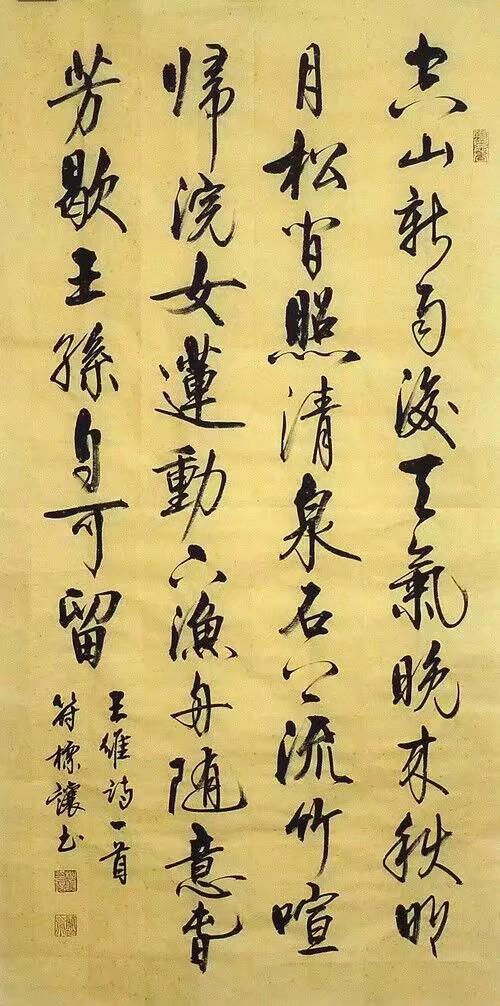 空山新雨後天氣晚来秋明
月松間照清泉石上流竹喧
歸浣女蓮動下漁舟随意春
芳歇王孫自可留
王維詩一首
符標讓书